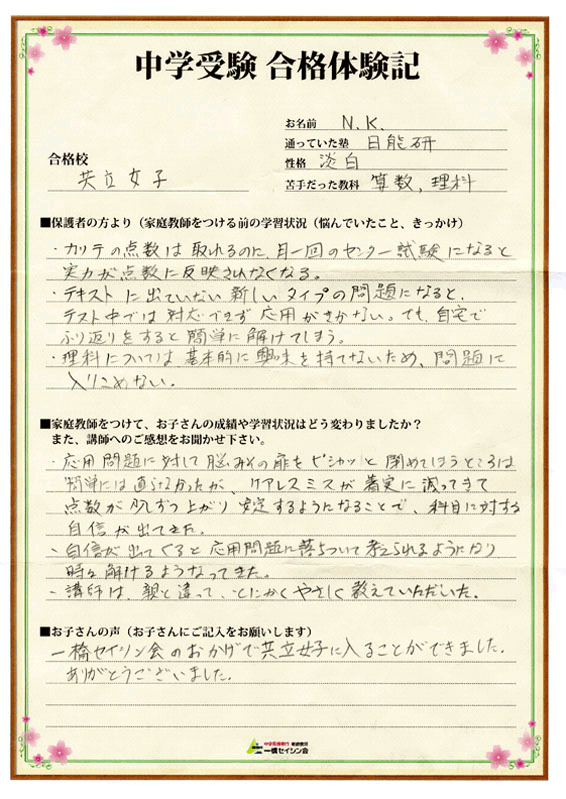 中学受験 合格体験記
お名前 N.K.
通っていた塾 日能研
合格校
共立女子
性格 淡白
苦手だった教科 算数,理科
■保護者の方より（家庭教師をつける前の学習状況（悩んでいたこと、きっかけ）
・カリテの点数は取れるのに、月一回のセンター試験になると
実力が点数に反映されなくなる。
・テキストに出ていない新しいタイプの問題になると、
テスト中では対応できず応用がきかない。でも、自宅で
ふり返りをすると簡単に解けてしまう。
・理科については基本的に興味を持てないため、問題に
入りこめない。
■家庭教師をつけて、お子さんの成績や学習状況はどう変わりましたか？
また、講師へのご感想をお聞かせ下さい。
・応用問題に対して脳みその扉をピシャッと閉めてしまうところは
簡単には直らなかったが、ケアレスミスが着実に減ってきて
点数が少しずつ上がり安定するようになることで、科目に対する
自信が出てきた。
・自信が出てくると応用問題に落ちついて考えられるようになり
時々解けるようなってきた。
・講師は、親と違って、とにかくやさしく教えていただいた。
■お子さんの声（お子さんにご記入をお願いします）
一橋セイシン会のおかげで共立女子に入ることができました。
ありがとうございました。
中学受験専門 家庭教師
一橋セイシン会